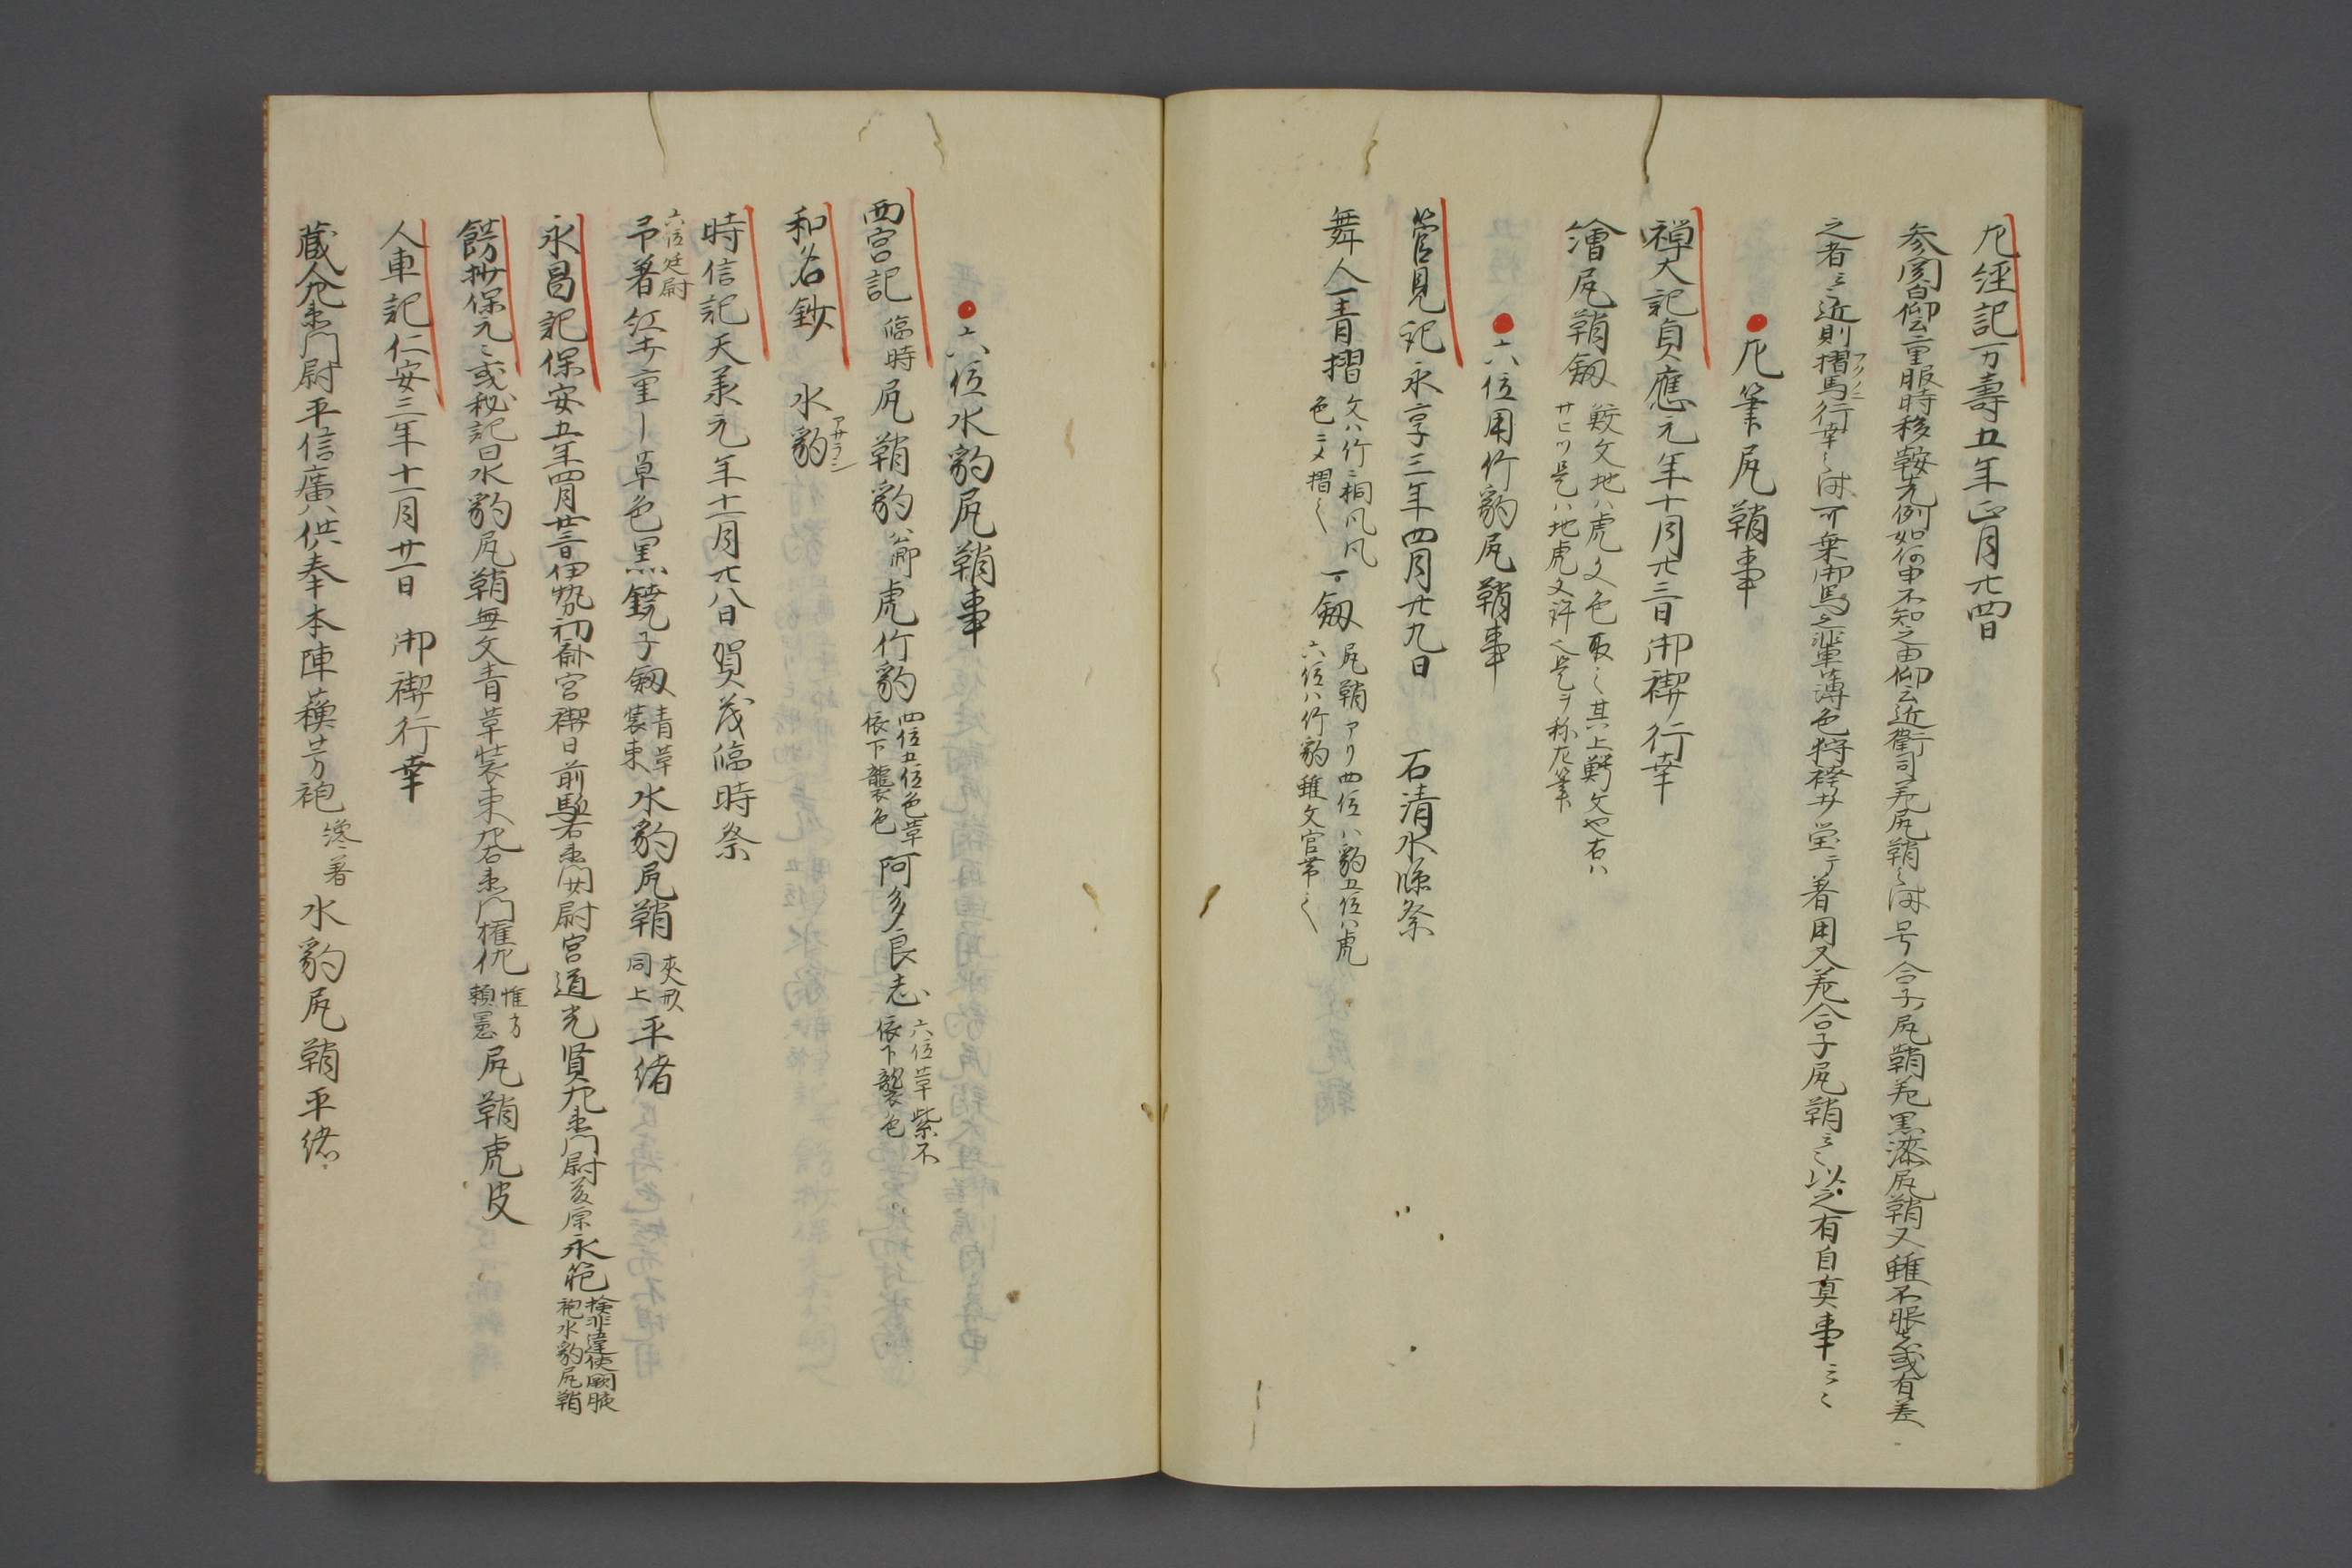 左経記万壽五年正月廿四日
参関白仰云重服時移鞍先例如何申不知之由仰云近衛司着尻鞘之時号合子尻鞘着黒漆尻鞘又雖不服者或有差
之者云々近則摺馬行幸之時可乗御馬之輩薄色狩袴等堂ニテ着用又着合子尻鞘云々以之有自真事云々
●左筆尻鞘事
禅大記貞應元年十月廿三日御禊行幸
繪尻鞘釼 鮫文地ハ虎文色取之其上鰐文也右ハ
サヒツ是ハ地虎文許也是ヲ称左筆
●六位用竹豹尻鞘事
管見記永享三年四月廿九日 石清水臨祭
舞人一青摺 文ハ竹ニ桐凡凡
色ニメ摺之 一釼 尻鞘アリ四位ハ豹五位ハ虎
六位ハ竹豹雖文官帯之
●六位水豹尻鞘事
西宮記 臨時 尻鞘豹 公卿 虎竹豹 四位五位色草
依下襲色 阿多良志 六位草紫不
依下襲色
和名鈔 水豹 アサラシ
時信記天承元年十一月廿八日賀茂臨時祭
六位廷尉
予著紅単重ー草色黒鐃子釼 青草
装束 水豹尻鞘 夾形
同上 平緒
永昌記保安五年四月廿三日伊勢初斎宮禊日前駈右衛門尉宮道光賢左衛門尉藤原永範 検非違使闕腋
袍水豹尻鞘
餝抄保元々或秘記曰水豹尻鞘無文青草装束左右衛門権佐 惟方
頼憲 尻鞘虎皮
人車記仁安三年十一月廿一日 御禊行幸
蔵人左衛門尉平信廣ハ供奉本陣蘓芳袍 纔著 水豹尻鞘平緒